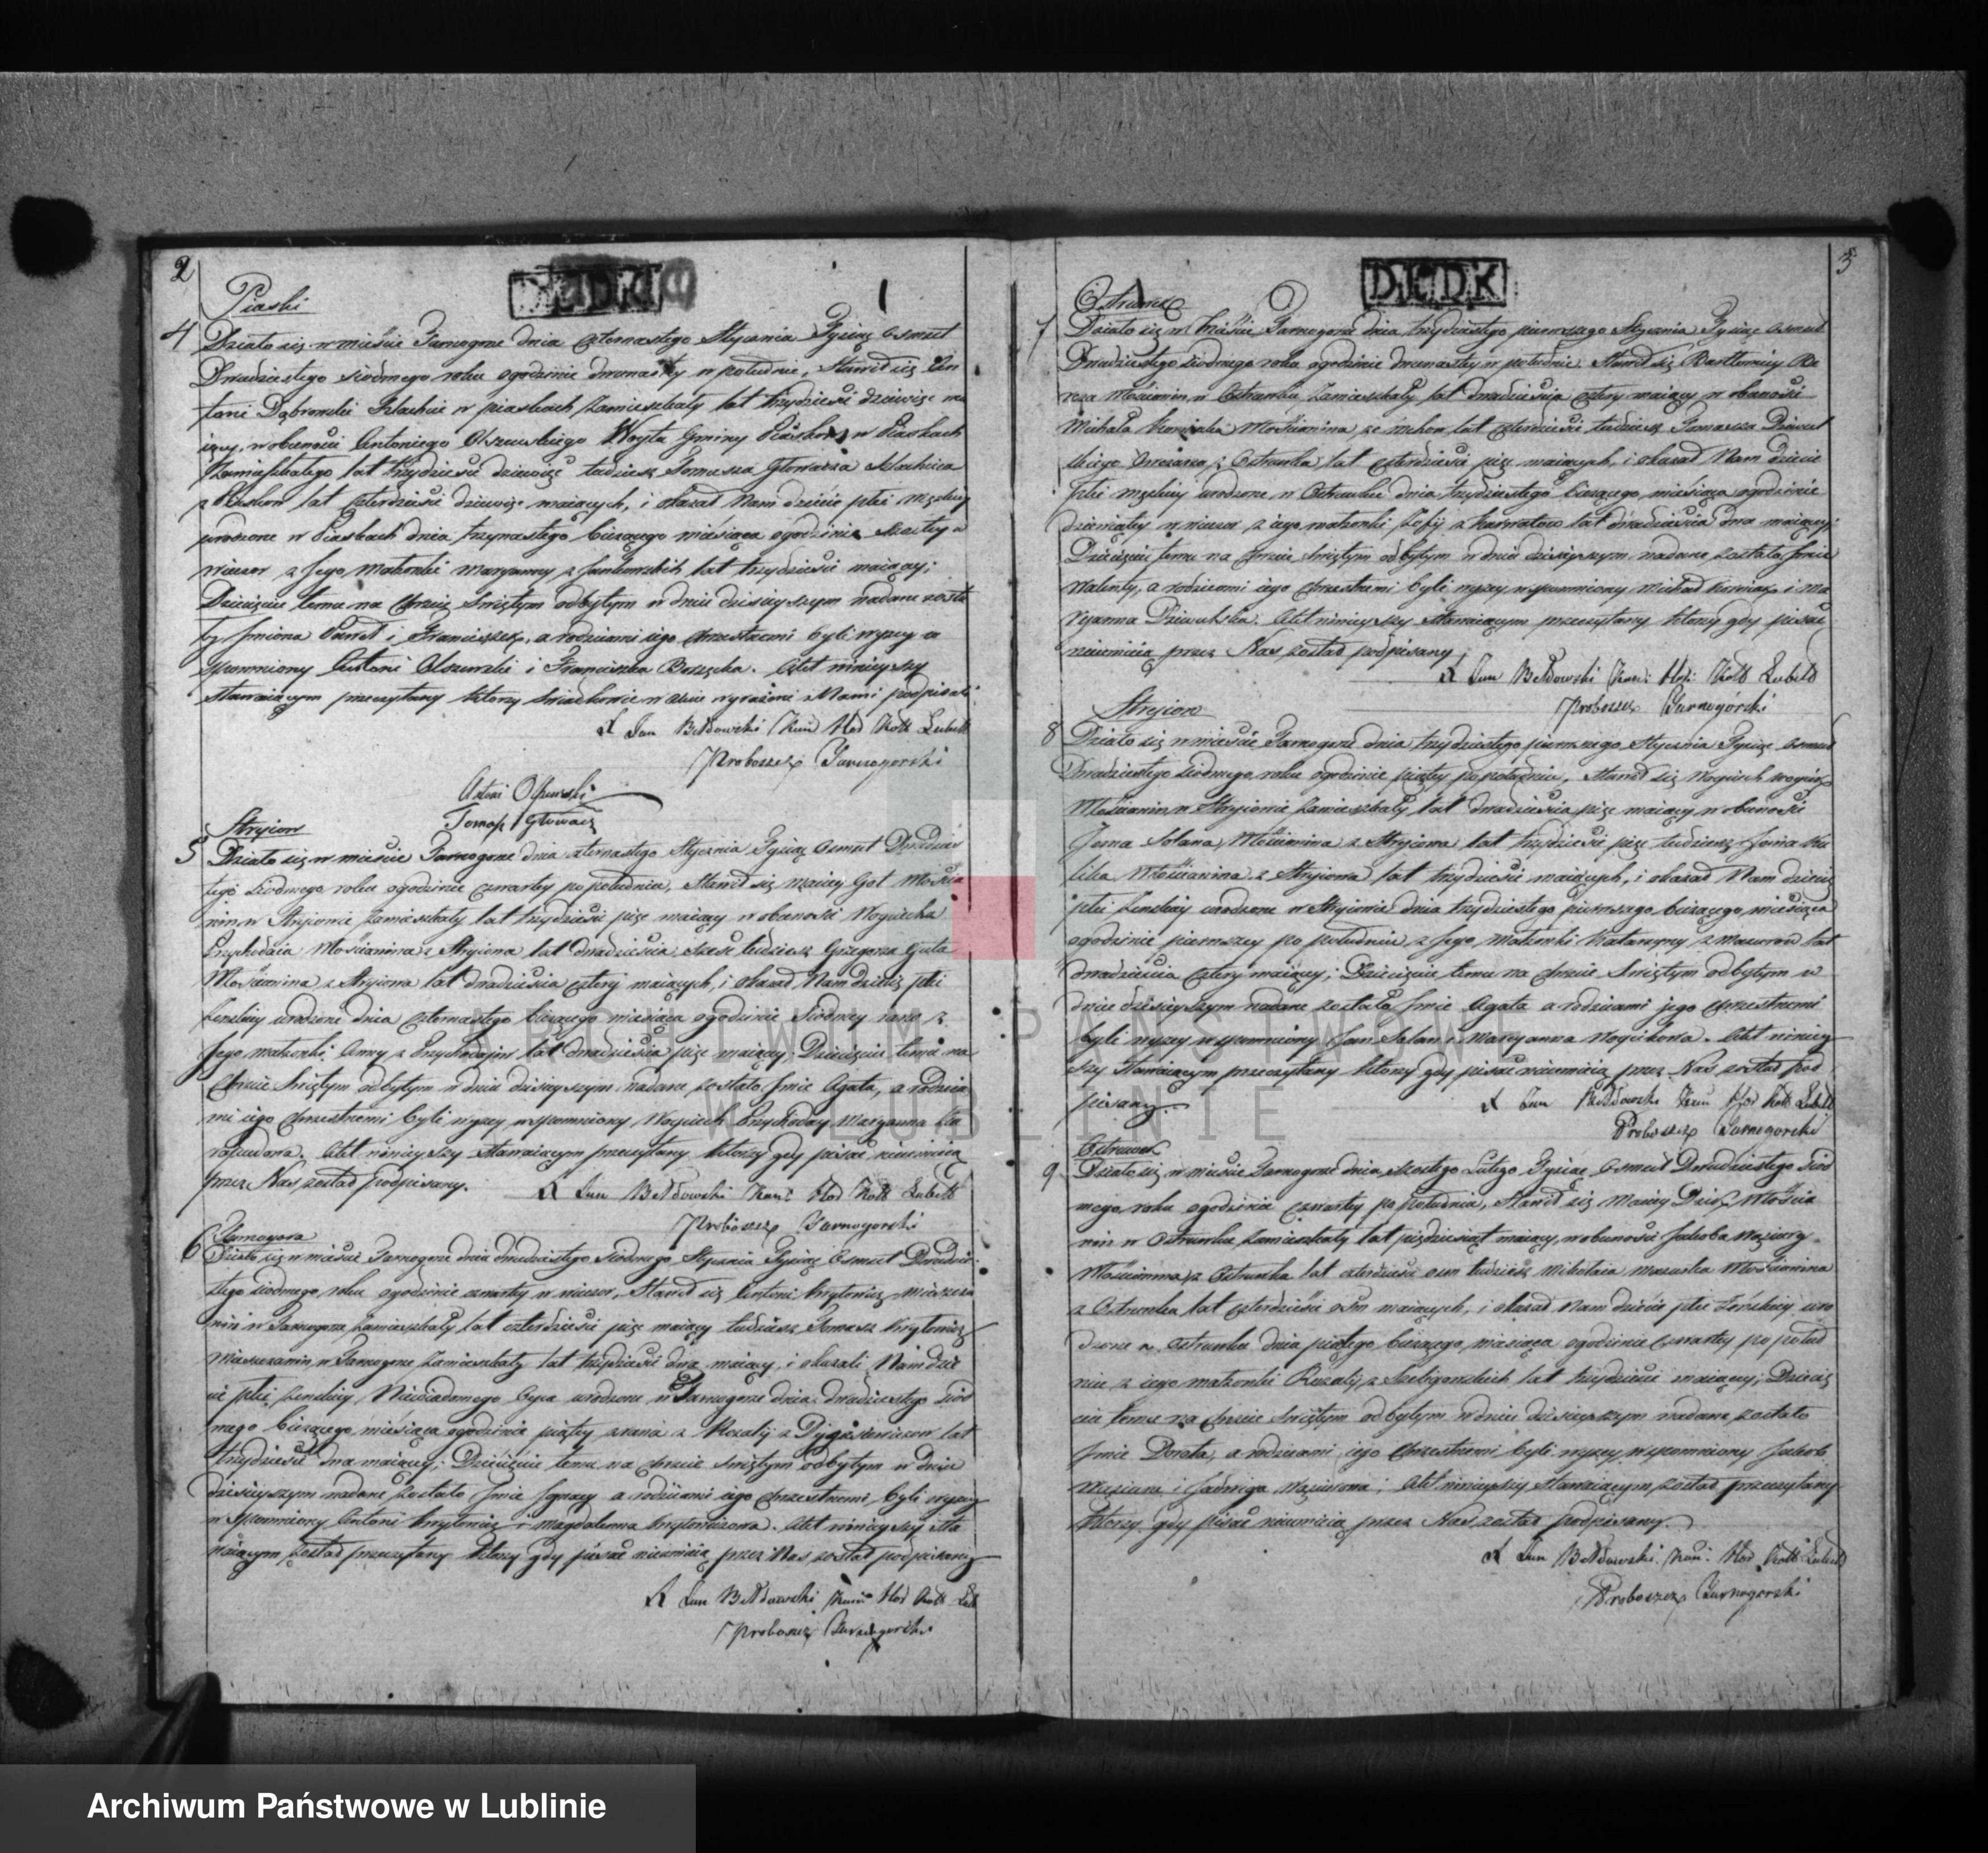 2
Piaski
4
Działo się w mieście Tarnogorze dnia czternastego Stycznia Tysiąc Osmset
Dwudziestego siodmego roku o godzinie dwunastey w południe, Stawił się An
toni Dąbrowski Szlachcic w piaskach zamieszkały lat trzydzieści dziewięć ma
iący, w obecności Antoniego Olszewskiego Woyta Gminy Piaskow w Piaskach
Zamieszkałego lat trzydzieści dziewięć tudziesz Tomasza Głowacza Szlachcica
z Piaskow lat czterdzieści dziewięć maiących, i okazał Nam dziecie płci męzkiey
urodzone w Piaskach dnia trzynastego bieżącego miesiąca o godzinie szostey w
wieczor z Jego Małżonki Maryanny z lat trzydzieści maiącey;
Dziecięciu temu na Chrzcie Świętym odbytym w dniu dzisieyszym nadane zosta
ły Jmiona Paweł i Franciszek, a rodzicami iego chrzestnemi byli wyzey w
spomniony Antoni Olszewski i Franciszka Akt ninieyszy
stawaiącym przeczytany ktorzy w akcie wyrażeni z Nami podpisali
X Jan Kan: Hod Kolb Lubelb
Proboszcz Tarnogorski
Antoni Olszewski
Tomasz Głowacz
Stryiow
5
Działo się w mieście Tarnogorze dnia czternastego Stycznia Tysiąc Osmset Dwudzies
tego siodmego roku o godzinie czwartey po południu, Stawił się Maciey Gol Włościa
nin w Stryiowie zamieszkały lat trzydzieści pięć maiący w obecności Woyciecha
Przychodzia Włościanina z Stryiowa lat dwadzieścia sześć tudziesz Grzegorza
Włościanina z Stryiowa lat dwadzieścia cztery maiących, i okazał Nam dziecię płci
żenskiey urodzone dnia czternastego bieżącego miesiąca o godzinie siodmey rano z
Jego małżonki Anny z lat dwadzieścia pięć maiącey; Dziecięciu temu na
Chrzcie Świętym odbytym w dniu dzisieyszym nadane zostało Jmie Agata, a rodzica
mi iego chrzestnemi byli wyzey wspomniony Woyciech i Maryanna
Akt ninieyszy Stawaiącym przeczytany ktorzy gdy pisać nieumieią
przez Nas został podpisany.
X Jan Kan: Hod Kolb Lubelb
Proboszcz Tarnogorski
Tarnogora
6
Działo się w mieście Tarnogorze dnia dwudziestego siodmego Stycznia Tysiąc Osmset Dwudzies
tego siodmego roku o godzinie czwartey w wieczor, Stawił się Antoni Krytowicz mieszcza
nin w Tarnogorze zamieszkały lat czterdzieści pięć maiący tudziesz Tomasz Krytowicz
Mieszczanin w Tarnogorze zamieszkały lat trzydzieści dwa maiący, i okazali Nam dzie
cie płci żenskiey Niewiadomego Oyca urodzone w Tarnogorze dnia dwudziestego siod
mego bieżącego miesiąca o godzinie piątey z rana z Rozalij z lat
trzydzieści dwa maiącey; Dziecięciu temu na chrzcie świętym odbytym w dniu
dzisieyszym nadane zostało Jmie a rodzicami iego chrzestnemi byli wyzey
wspomniony Antoni Krytowicz i Magdalena Krytowiczowa. Akt ninieyszy sta
waiącym został przeczytany ktorzy gdy pisać nieumieią przez Nas został podpisany
X Jan Kan: Hod Kolb Lub
Proboszcz Tarnogorski
DKDK
3
Ostrowek
7
Działo się w Mieście Tarnogorze dnia trzydziestego pierwszego Stycznia Tysiąc Osmset
Dwudziestego siodmego roku o godzinie dwunastey w południe. Stawił się Bartłomiey
Włościanin w Ostrowku zamieszkały lat dwadzieścia cztery maiący w obecności
Michała Włościanina lat czterdzieści tudziesz Tomasza
z Ostrowka lat czterdzieści pięć maiących, i okazał Nam dziecie
płci męzkiey urodzone w Ostrowku dnia trzydziestego bieżącego miesiąca o godzinie
dziewiątey w wieczor z iego małżonki Zofij z lat dwadzieścia dwa maiącey;
Dziecięciu temu na chrzcie świętym odbytym w dniu dzisieyszym nadane zostało Jmie
Walenty, a rodzicami iego chrzestnemi byli wyzey wspomniony Michał i Ma
ryanna Akt ninieyszy stawaiącym przeczytany ktory gdy pisać
nieumieią przez Nas został podpisany
X Jan Kan: Hod: Kolb Lubelb
Proboszcz Tarnogórski
Stryiow
8
Działo się w mieście Tarnogorze dnia trzydziestego pierwszego Stycznia Tysiąc Osmset
Dwudziestego siodmego roku o godzinie piątey po południu, Stawił się Woyciech
Włościanin w Stryiowie zamieszkały lat dwadzieścia pięć maiący w obecności
Jana Solana Włościanina z Stryiowa lat trzydzieści pięć tudziesz Jana Ku
lika Włościanina z Stryiowa lat trzydzieści maiących, i okazał Nam dziecię
płci żenskiey urodzone w Stryiowie dnia trzydziestego pierwszego bieżącego miesiąca
o godzinie pierwszey po południu z Jego małżonki Katarzyny z Mazurow lat
dwadzieścia cztery maiącey; Dziecięciu temu na chrzcie Świętym odbytym w
dniu dzisieyszym nadane zostało Jmie Agata a rodzicami jego chrzestnemi
byli wyzey wspomniony Jan Solan i Maryanna Akt niniey
szy Stawaiącym przeczytany ktorzy gdy pisać nieumieią przez Nas został pod
pisany.
X Jan Kan: Hod Kolb Lubelb
Proboszcz Tarnogorski
Ostrowek
9
Działo się w mieście Tarnogorze dnia szostego Lutego Tysiąc Osmset Dwudziestego siod
mego roku o godzinie czwartey po południu, Stawił się Maciey Włościa
nin w Ostrowku zamieszkały lat pięćdziesiąt maiący, w obecności Jakoba
Włościanina z Ostrowka lat czterdzieści osm tudziesz Mikołaia Mazurka Włościanina
z Ostrowka lat czterdzieści osm maiących, i okazał Nam dziecie płci żeńskiey uro
dzone w Ostrowku dnia piątego bieżącego miesiąca o godzinie czwartey po połud
niu z iego małżonki Rozalij z lat trzydzieści maiącey; Dziecię
ciu temu na chrzcie świętym odbytym w dniu dzisieyszym nadane zostało
Jmie Dorota, a rodzicami iego chrzestnemi byli wyzey wspomniony Jakob
i Jadwiga Akt ninieyszy Stawaiącym został przeczytany
ktorzy gdy pisać nieumieią przez Nas został podpisany.
X Jan Kan: Hod Kolb Lubelb
Proboszcz Tarnogorski
ARCHIWUM PAŃSTWOWE
W LUBLINIE
Archiwum Państwowe w Lublinie